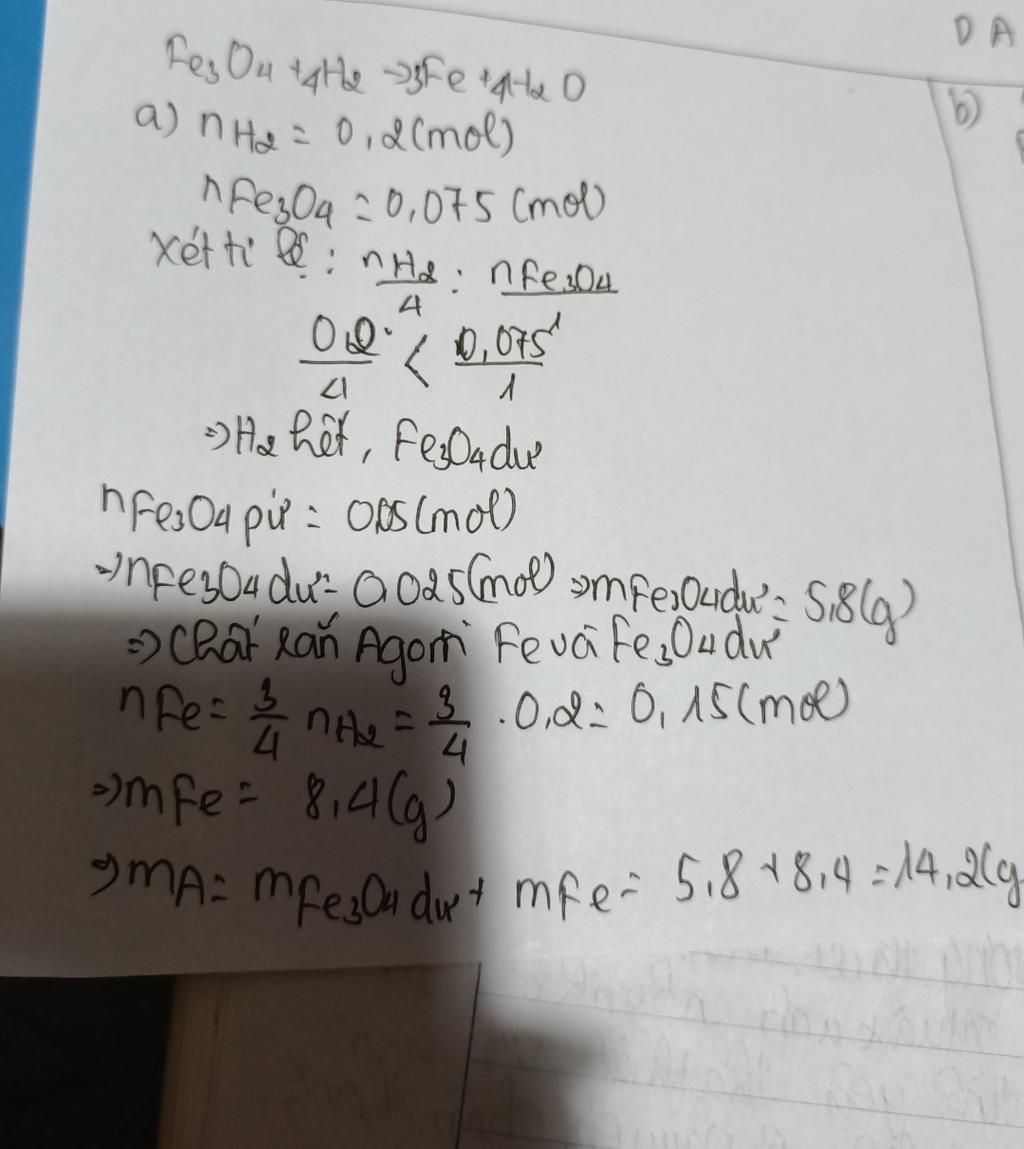 Fe3O4 + 4H2 → 3Fe + 4H2O
a) nH2 = 0,2 (mol)
nFe3O4 = 0,075 (mol)
Xét tỉ lệ : nH2/4 : nFe3O4/1
0,2/4 < 0,075/1
⇒ H2 hết, Fe3O4 dư
nFe3O4 pứ = 0,05 (mol)
⇒ nFe3O4 dư = 0,025 (mol) ⇒ mFe3O4 dư = 5,8 (g)
⇒ Chất rắn A gồm Fe và Fe3O4 dư
nFe = 3/4 nH2 = 3/4 . 0,2 = 0,15 (mol)
⇒ mFe = 8,4 (g)
⇒ mA = mFe3O4 dư + mFe = 5,8 + 8,4 = 14,2 (g
D A
b)